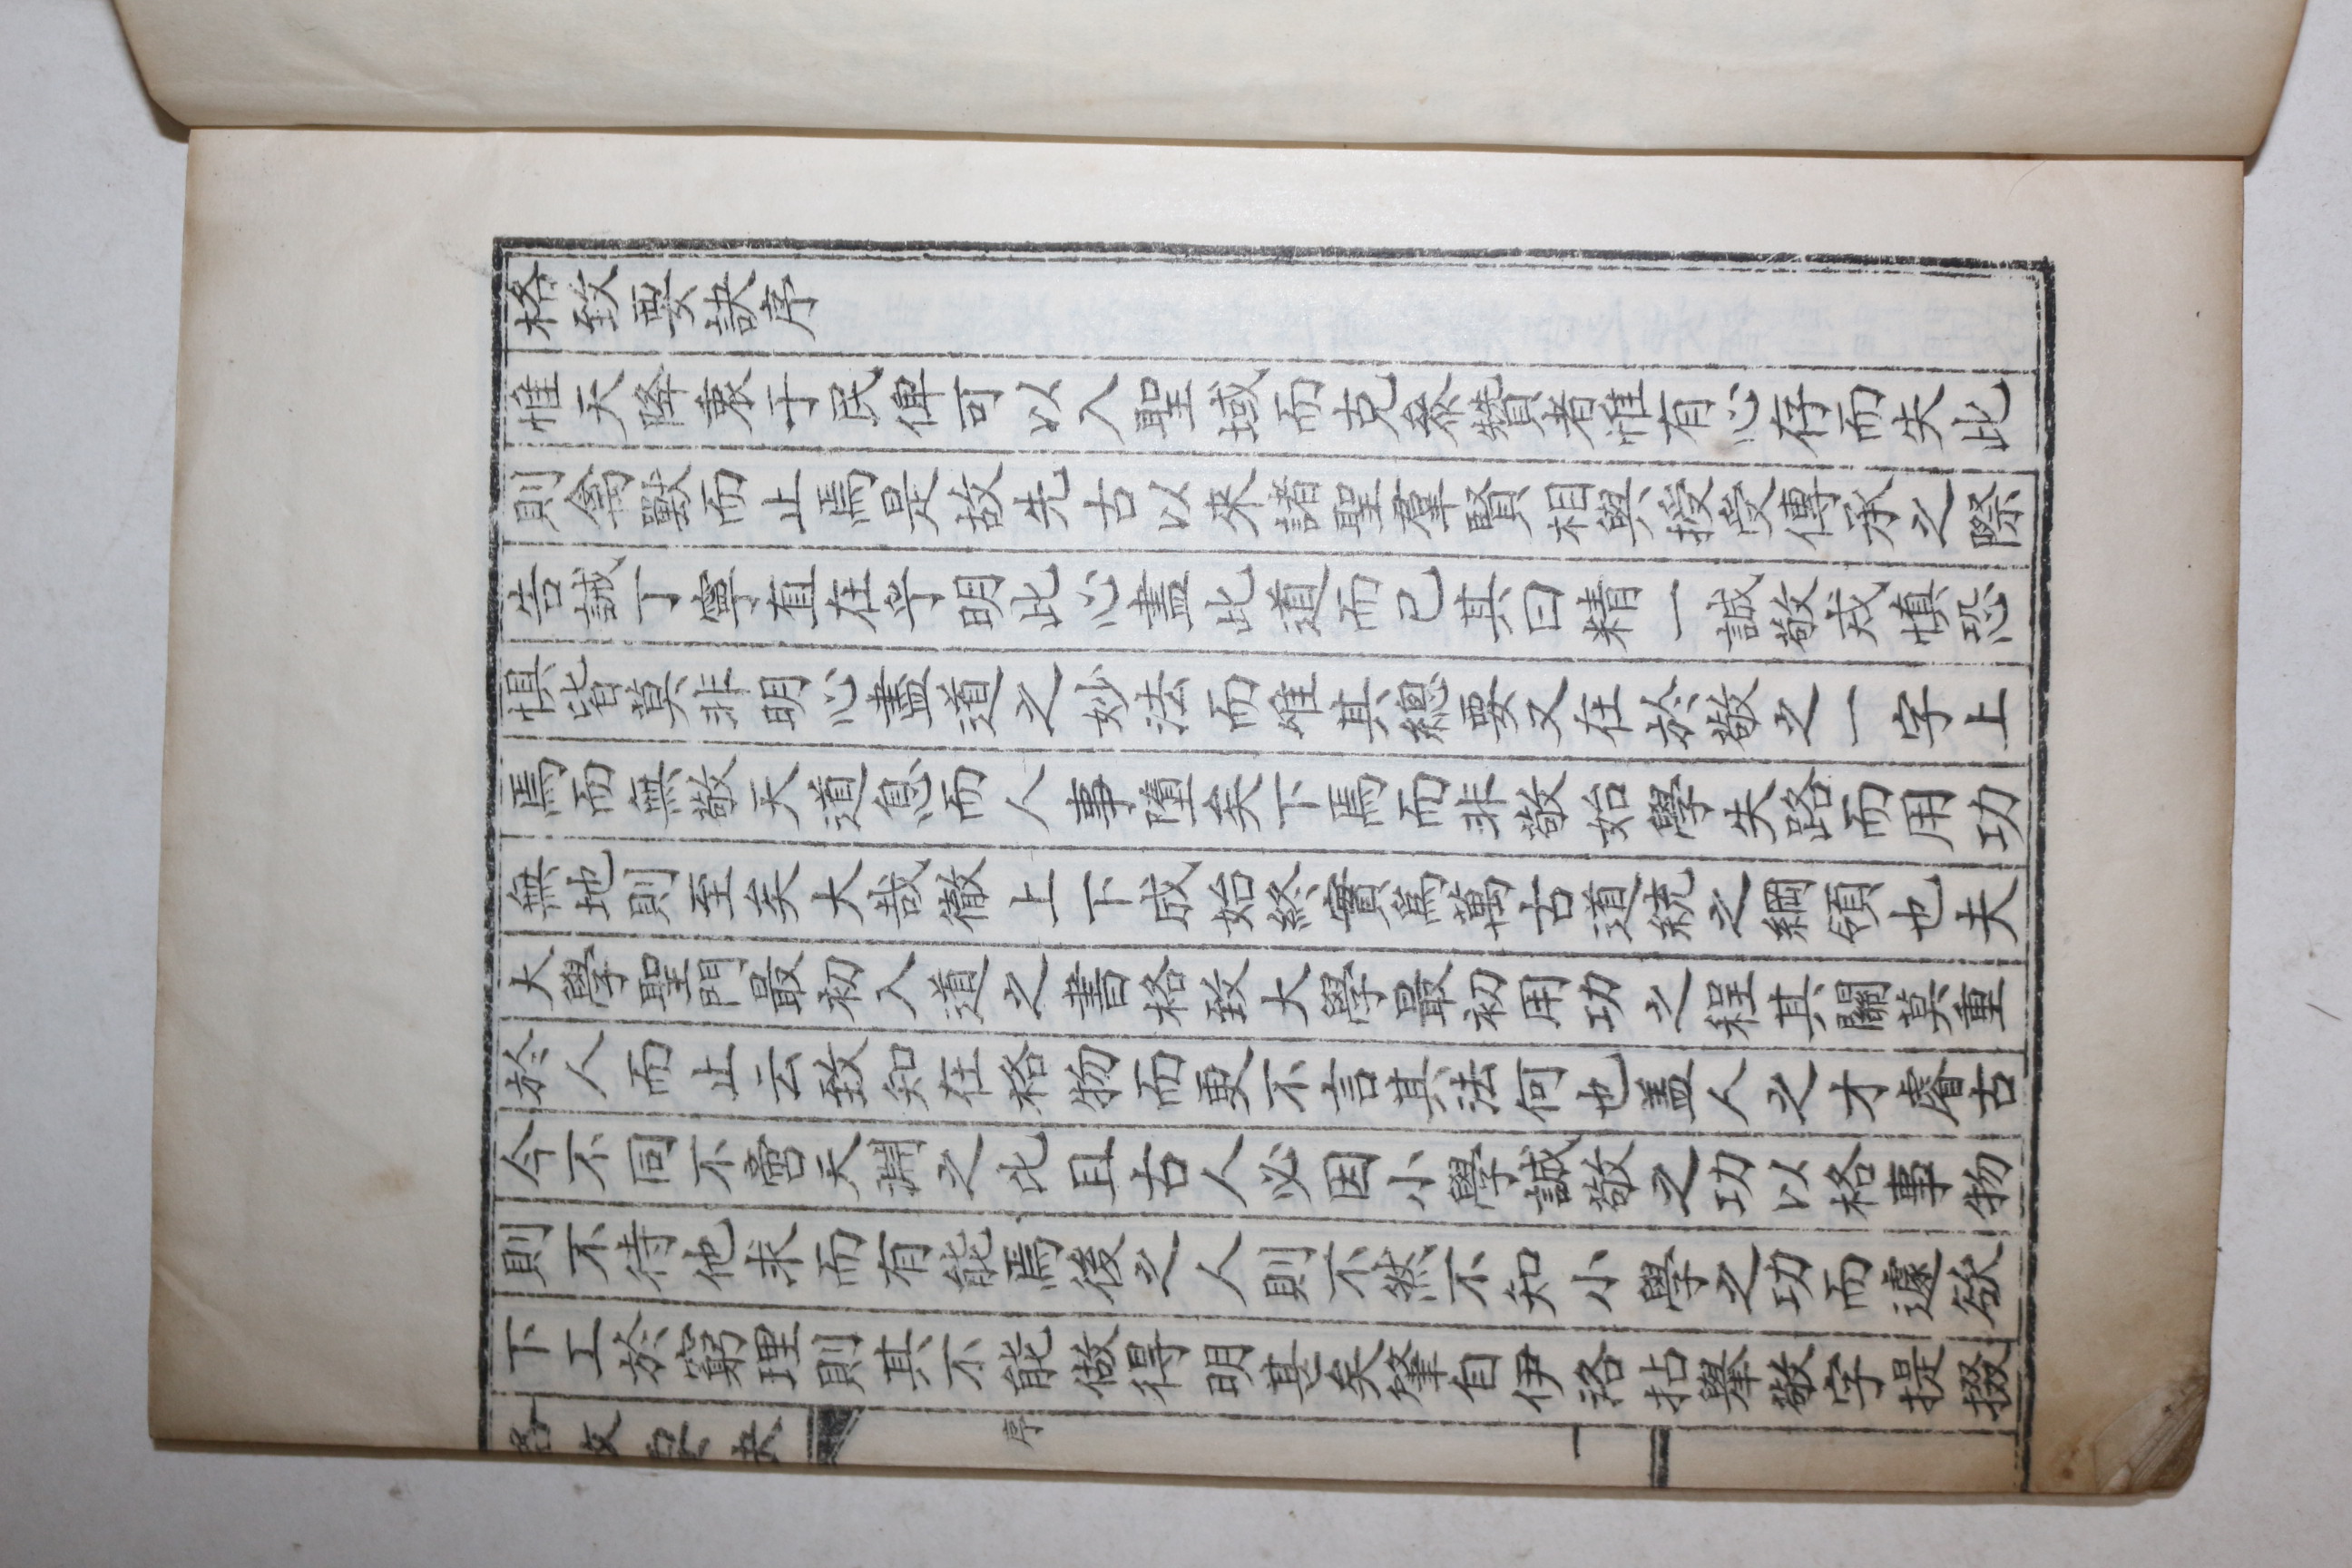 格致要訣序
惟天降衷于民俾可以入聖域而克叅贊者惟有心存而失此
則禽獸而止焉是故先古以來諸聖羣賢相與授受傳承之際
告誡丁寧直在乎明此心盡此道而已其曰精一誠敬戒愼恐
惧皆莫非明心盡道之妙法而惟其緫要又在於敬之一字上
焉而無敬天道息而人事墮矣下焉而非敬始學失路而用功
無地則至矣大哉徹上下成始終實爲萬古道統之綱領也夫
大學聖門最初入道之書格致大學最初用功之程其關莫重
於人而止云致知在格物而更不言其法何也盖人之才處古
今不同不啻天淵之比且古人必因小學誠敬之功以格事物
則不待他求而有能焉後之人則不然不知小學之功而遽欲
下工於窮理則其不能做得明甚矣肇自伊洛拈舉敬字提掇
格致要訣
序
一